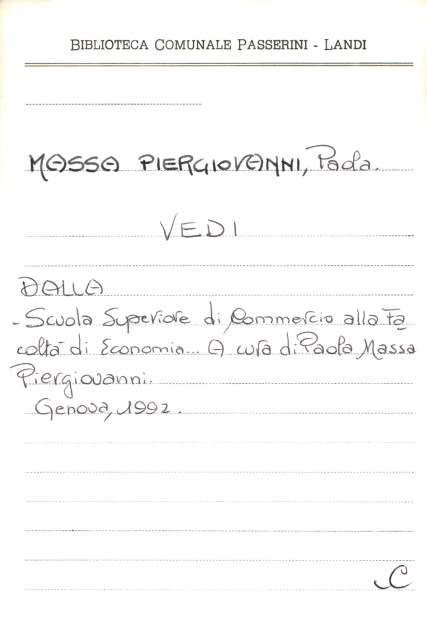 BIBLIOTECA COMUNALE PASSERINI - LANDI
MASSA PIERGIOVANNI, Paola.
VEDI
DALLA
- Scuola Superiore di Commercio alla Fa
coltà di Economia... A cura di Paola Massa
Piergiovanni.
Genova, 1992.
C